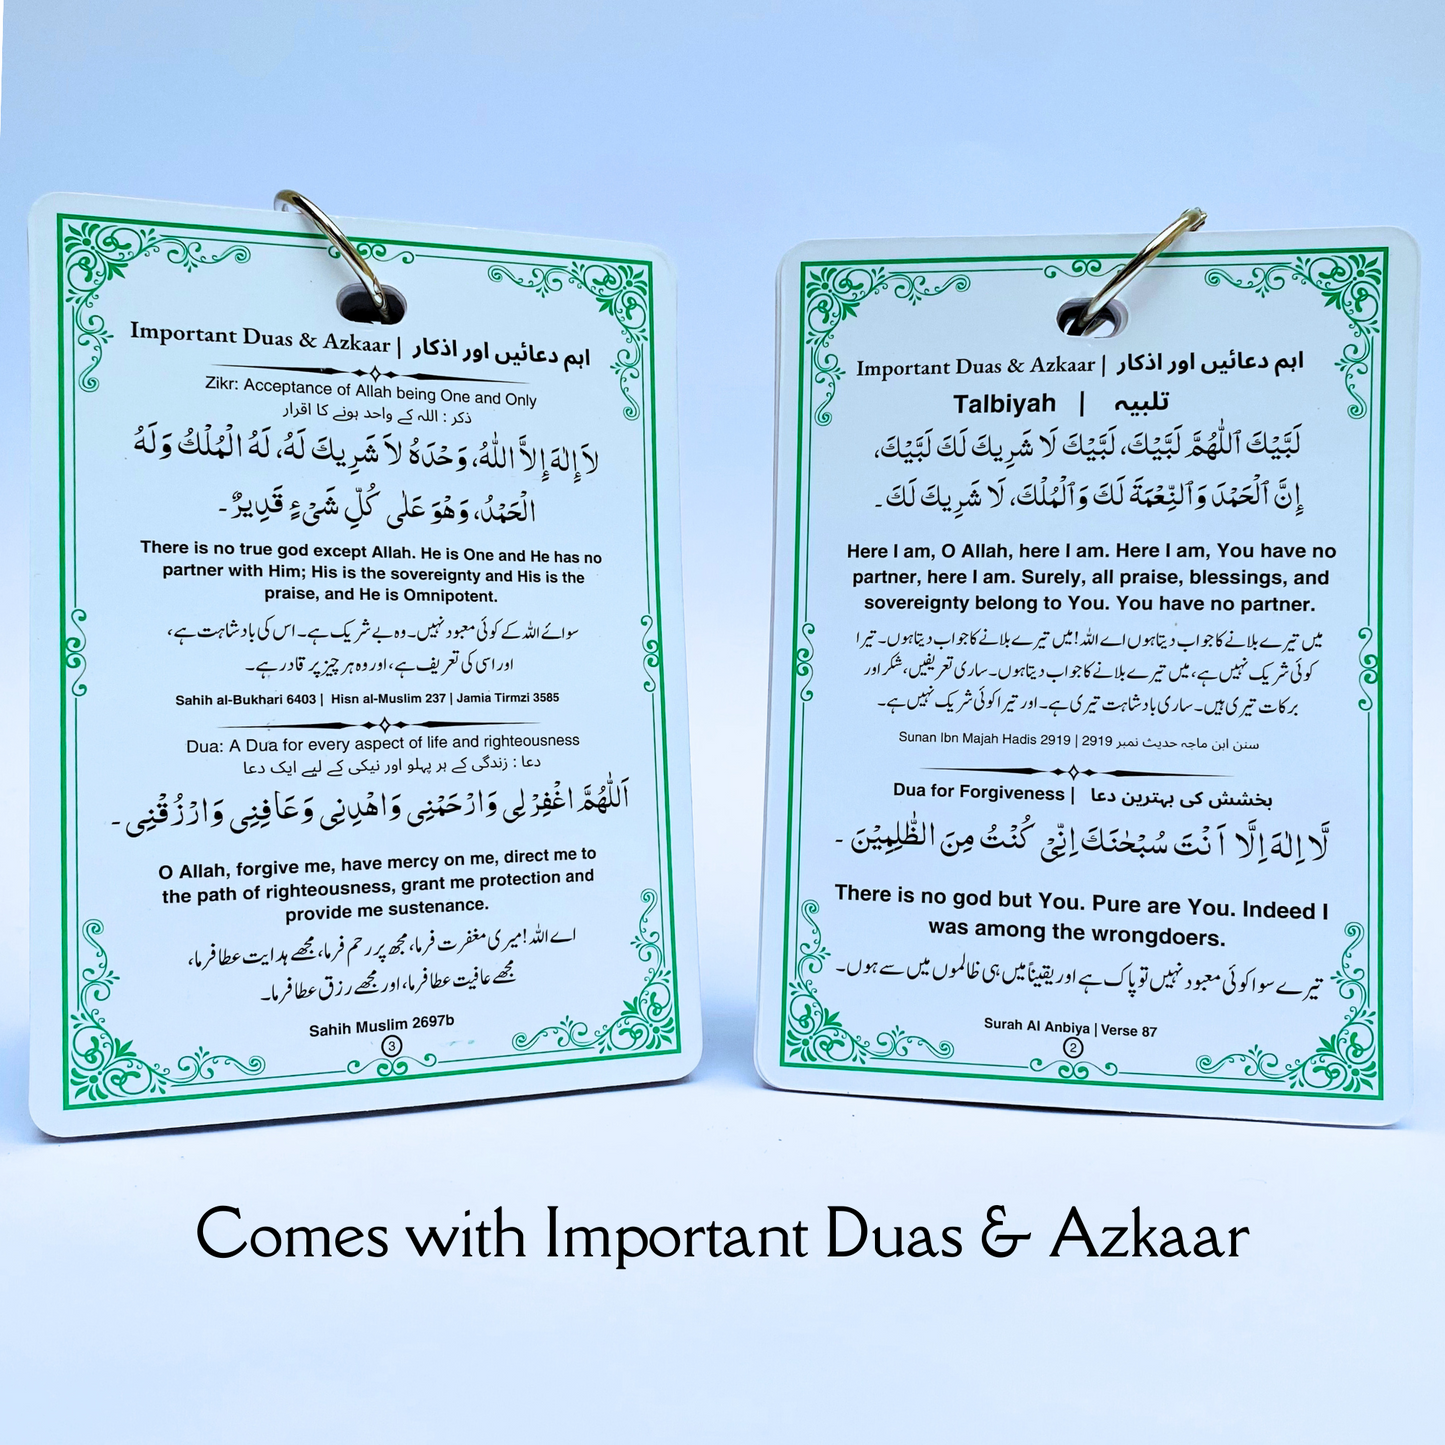 Important Duas & Azkaar | اہم دعائیں اور اذکار
Zikr: Acceptance of Allah being One and Only
ذکر : اللہ کے واحد ہونے کا اقرار
لاَ إِلٰهَ إِلاَّ اللّٰهُ، وَحْدَهُ لاَ شَرِيكَ لَهُ، لَهُ الْمُلْكُ وَلَهُ
الْحَمْدُ، وَهْوَ عَلٰى كُلِّ شَىْءٍ قَدِيرٌ۔
There is no true god except Allah. He is One and He has no
partner with Him; His is the sovereignty and His is the
praise, and He is Omnipotent.
سوائے اللہ کے کوئی معبود نہیں۔ وہ بے شریک ہے۔ اس کی بادشاہت ہے،
اور اسی کی تعریف ہے، اور وہ ہر چیز پر قادر ہے۔
Sahih al-Bukhari 6403 | Hisn al-Muslim 237 | Jamia Tirmzi 3585
Dua: A Dua for every aspect of life and righteousness
دعا : زندگی کے ہر پہلو اور نیکی کے لیے ایک دعا
اَللّٰهُمَّ اغْفِرْ لِى وَارْحَمْنِى وَاهْدِنِى وَعَافِنِى وَارْزُقْنِى۔
O Allah, forgive me, have mercy on me, direct me to
the path of righteousness, grant me protection and
provide me sustenance.
اے اللہ! میری مغفرت فرما، مجھ پر رحم فرما، مجھے ہدایت عطا فرما،
مجھے عافیت عطا فرما، اور مجھے رزق عطا فرما۔
Sahih Muslim 2697b
3
Important Duas & Azkaar | اہم دعائیں اور اذکار
Talbiyah | تلبیہ
لَبَّيْكَ ٱللّٰهُمَّ لَبَّيْكَ، لَبَّيْكَ لَا شَرِيكَ لَكَ لَبَّيْكَ،
إِنَّ ٱلْحَمْدَ وَٱلنِّعْمَةَ لَكَ وَٱلْمُلْكَ، لَا شَرِيكَ لَكَ۔
Here I am, O Allah, here I am. Here I am, You have no
partner, here I am. Surely, all praise, blessings, and
sovereignty belong to You. You have no partner.
میں تیرے بلانے کا جواب دیتا ہوں اے اللہ! میں تیرے بلانے کا جواب دیتا ہوں۔ تیرا
کوئی شریک نہیں ہے، میں تیرے بلانے کا جواب دیتا ہوں۔ ساری تعریفیں، شکر اور
برکات تیری ہیں۔ ساری بادشاہت تیری ہے۔ اور تیرا کوئی شریک نہیں ہے۔
Sunan Ibn Majah Hadis 2919 | سنن ابن ماجہ حدیث نمبر 2919
Dua for Forgiveness | بخشش کی بہترین دعا
لَّا اِلٰهَ اِلَّا اَنْتَ سُبْحٰنَكَ اِنِّىْ كُنْتُ مِنَ الظّٰلِمِيْنَ۔
There is no god but You. Pure are You. Indeed I
was among the wrongdoers.
تیرے سوا کوئی معبود نہیں تو پاک ہے اور یقیناً میں ہی ظالموں میں سے ہوں۔
Surah Al Anbiya | Verse 87
2
Comes with Important Duas & Azkaar